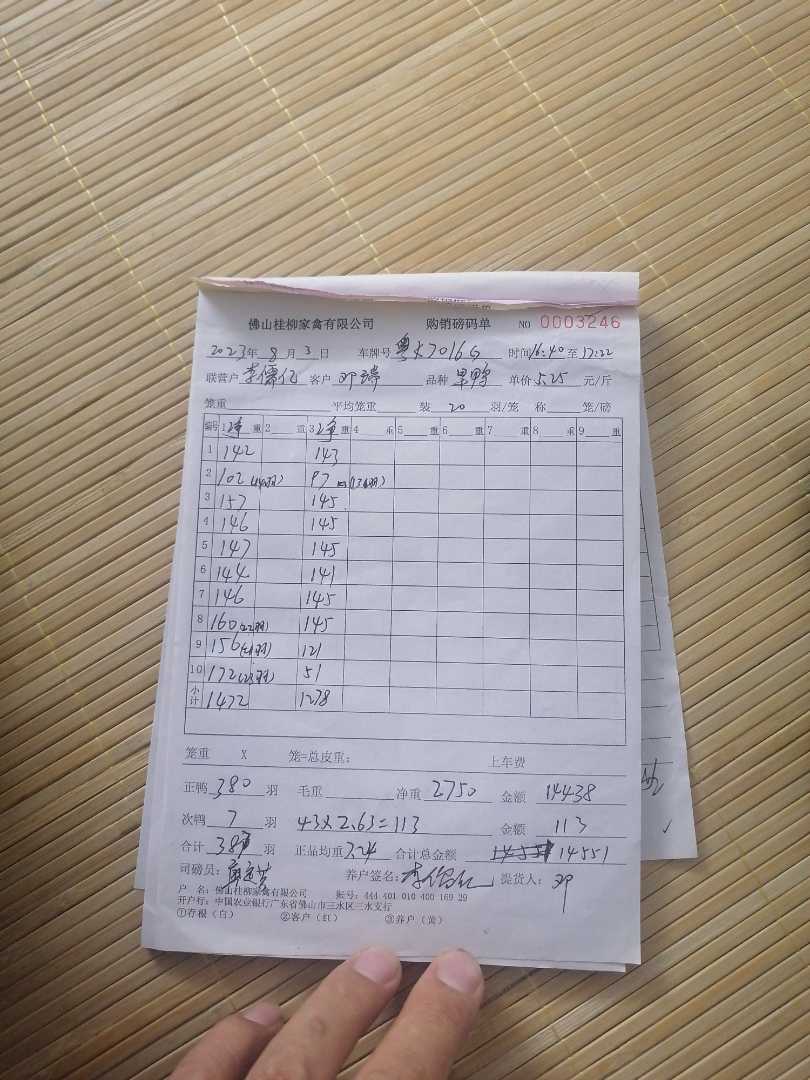 佛山桂柳家禽有限公司 购销磅码单 NO 0003246
2023年 8 月 3 日 车牌号 粤 7016G 时间16:40至17:22
联营户 李儒亿 客户 邓 品种 旱鸭 单价 5.25 元/斤
笼重 平均笼重 装 20 羽/笼 称 笼/磅
编号 1净重 2 重 3净重 4 重 5 重 6 重 7 重 8 重 9 重
1 142 143
2 102 97
3 157 145
4 146 145
5 147 145
6 144 141
7 146 145
8 160(22羽) 145
9 156 121
10 172(23羽) 51
小计 1472 1278
笼重 X 笼=总皮重: 上车费
正鸭 380 羽 毛重 净重 2750 金额 14438
次鸭 7 羽 43×2.63=113 金额 113
合计 387 羽 正品均重 7.24 合计总金额 14551
司磅员: 养户签名: 李儒亿 提货人: 邓
户 名: 佛山桂柳家禽有限公司 账号: 444 401 010 400 169 29
开户行: 中国农业银行广东省佛山市三水区三水支行
①存根(白) ②客户(红) ③养户(黄)